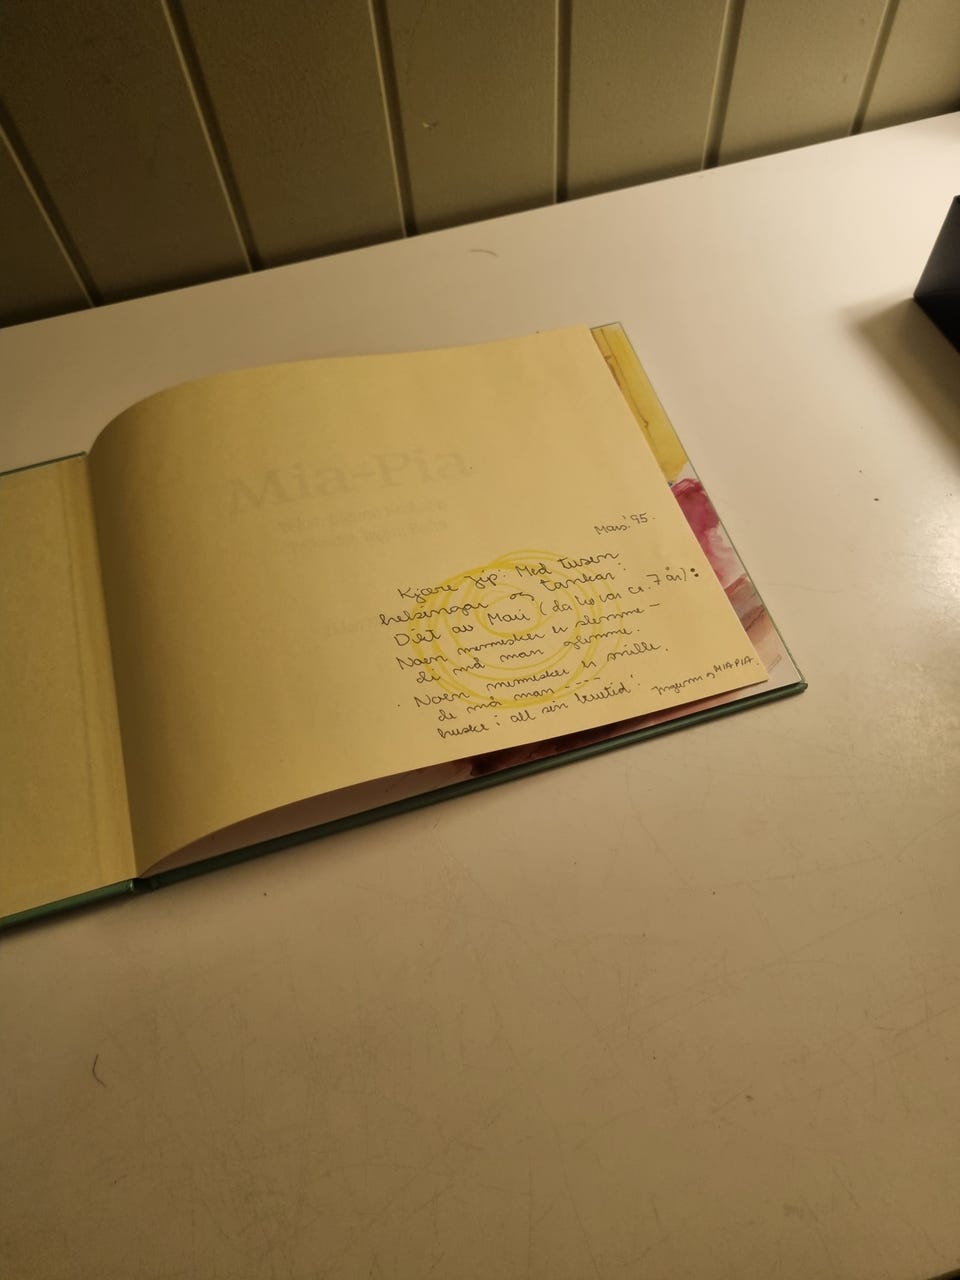 Mia-Pia
Mars '95.
Kjære Jip: Med tusen
helsingar og tankar:
Dikt av Mari (da ho var ca. 7 år):
Noen mennesker er slemme –
di må man glemme.
Noen mennesker er snille.
de må man ----
huske i all sin levetid!
Ingunn og MIA PIA.